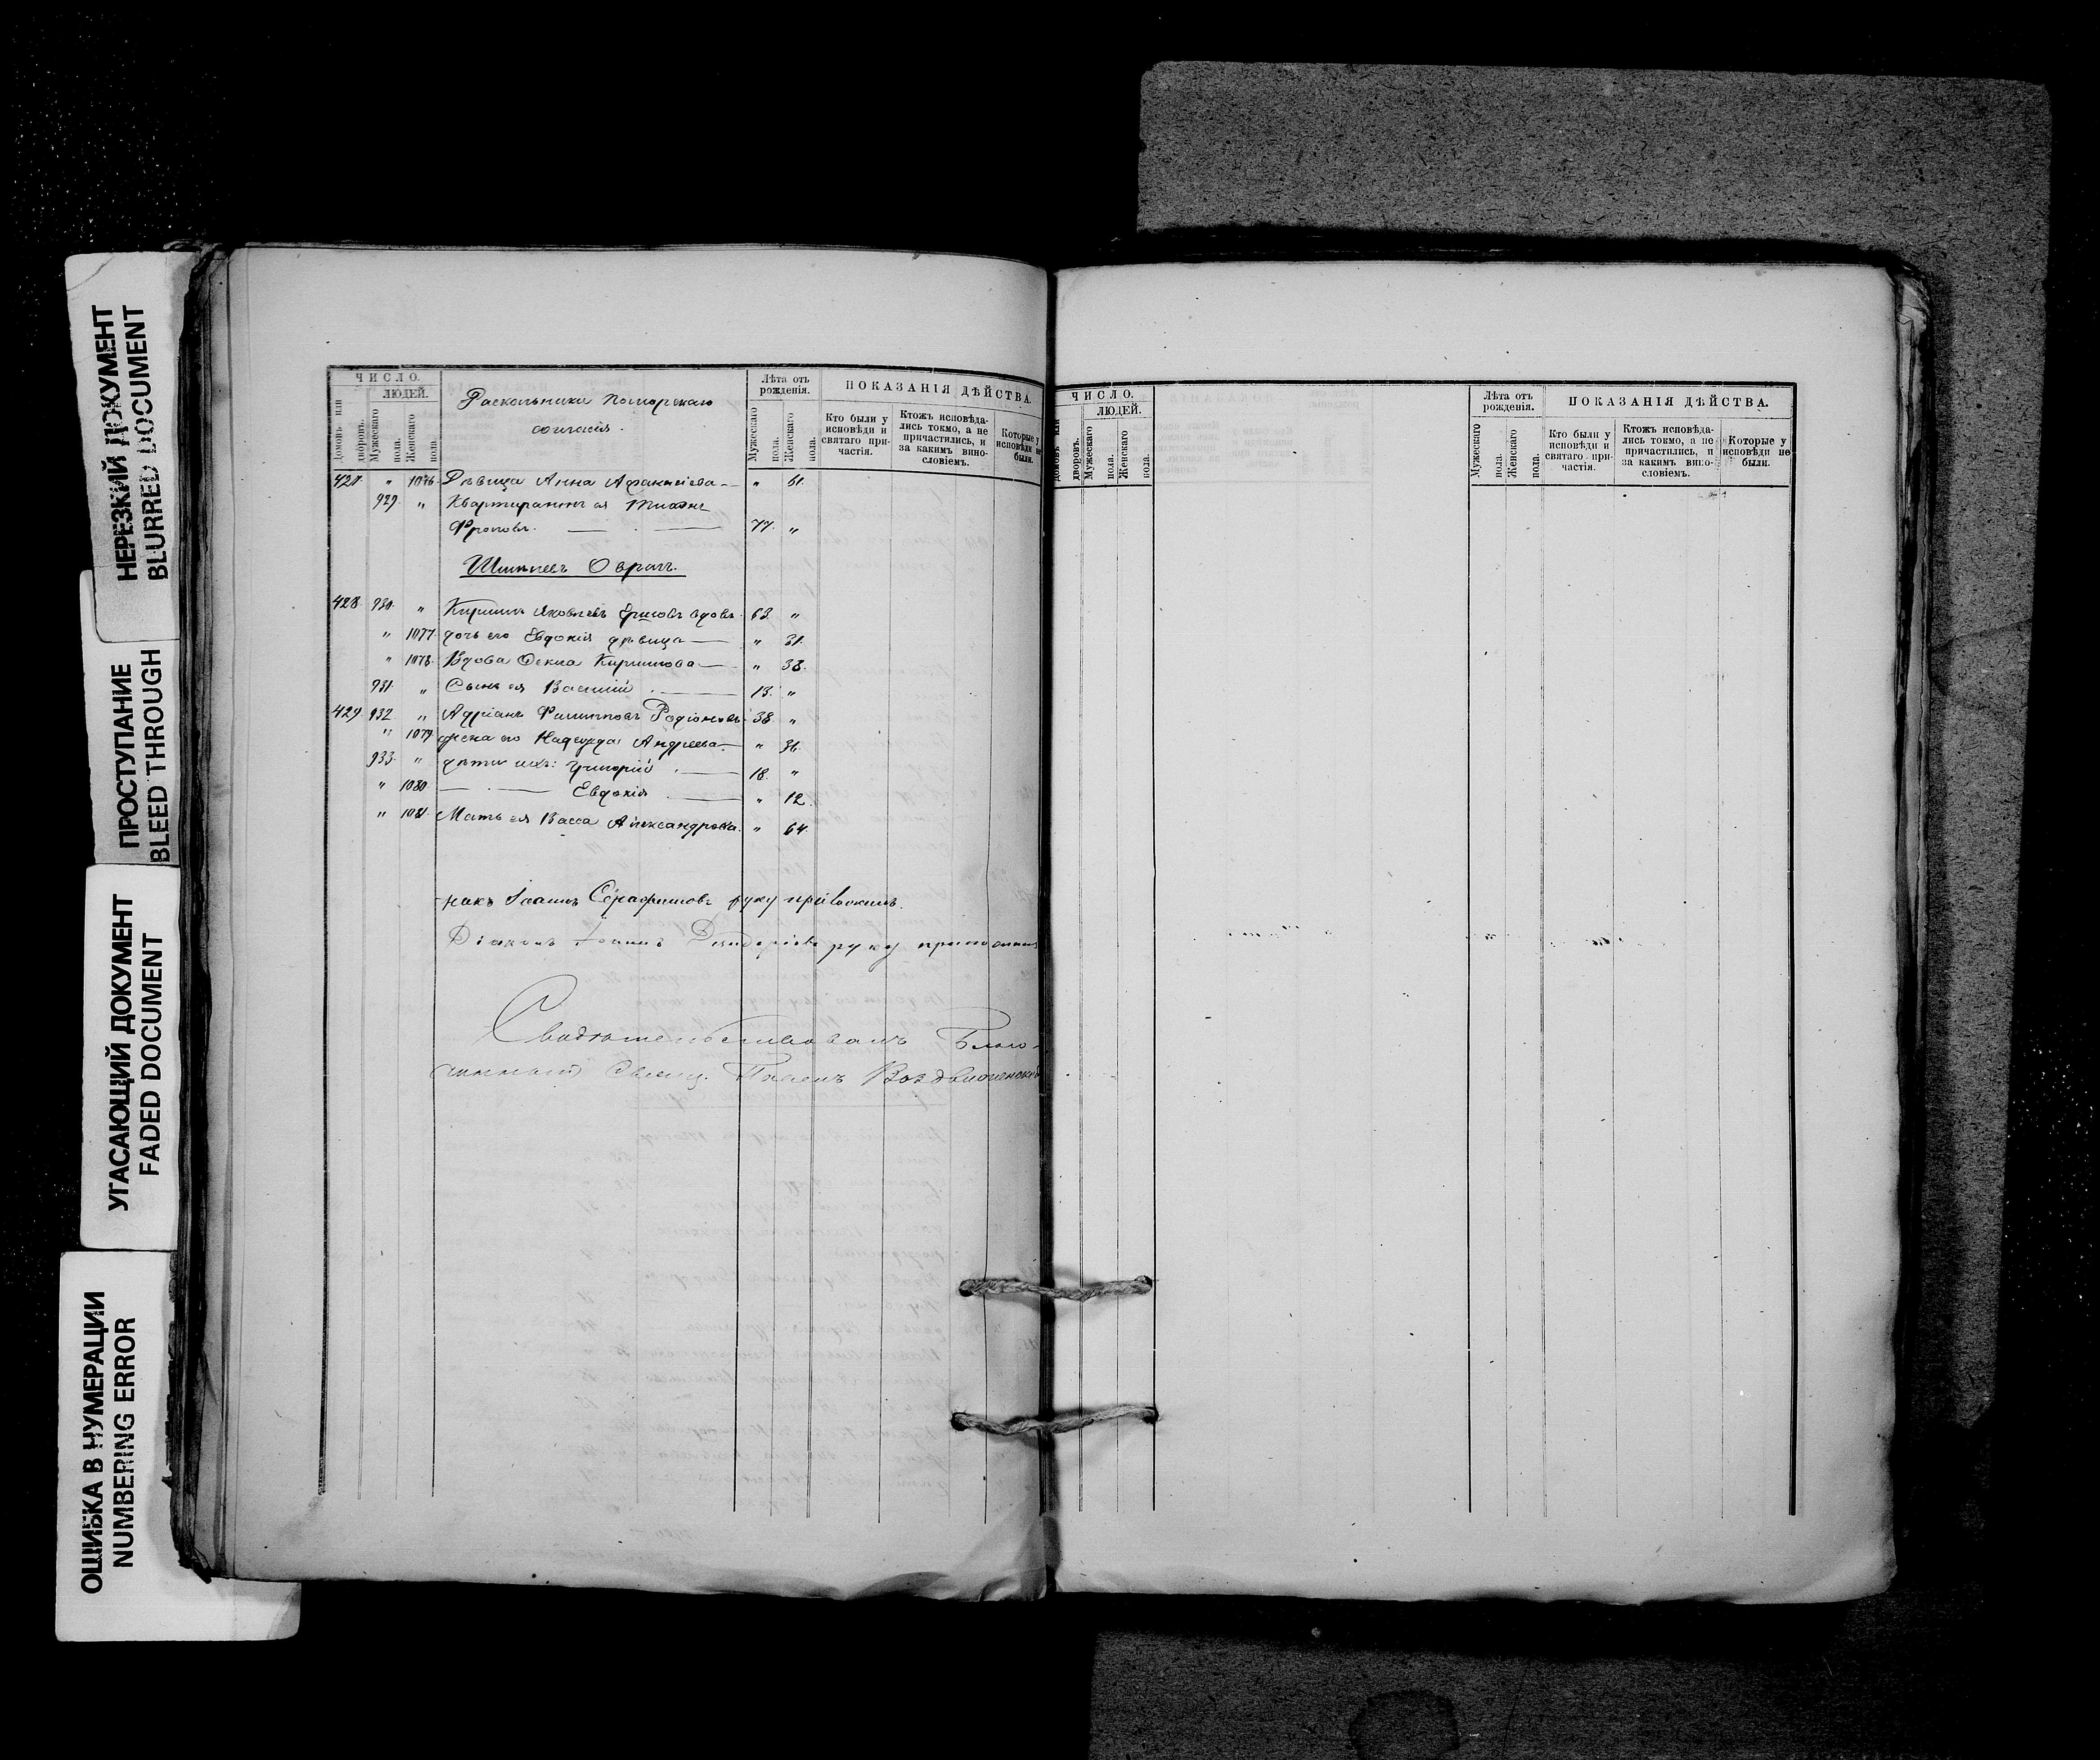 НЕРЕЗКИЙ ДОКУМЕНТ
BLURRED DOCUMENT
ПРОСТУПАНИЕ
BLEED THROUGH
УГАСАЮЩИЙ ДОКУМЕНТ
FADED DOCUMENT
ОШИБКА В НУМЕРАЦИИ
NUMBERING ERROR
ЧИСЛО.
ЛЮДЕЙ.
Домовъ или дворовъ.
Мужескаго пола.
Женскаго пола.
Раскольники Поморскаго
согласія.
Лѣта отъ рожденія.
Мужескаго пола.
Женскаго пола.
ПОКАЗАНІЯ ДѢЙСТВА.
Кто были у исповѣди и святаго причастія.
Ктожъ исповѣдались токмо, а не причастились, и за какимъ винословіемъ.
Которые у исповѣди не были.
427 " 1076 Дѣвица Анна Афанасіева " 61.
929 " Квартирантъ ея
Фроловъ. 77. "
Овраг.
428. 930. " Яковлевъ вдовъ 63. "
" 1077. дочь его Евдокія дѣвица " 31.
" 1078. Вдова Кириллова " 38.
931. " Сынъ ея Василій 13. "
429. 932 " Адріанъ Филипповъ Родіоновъ 38 "
" 1079 жена его Надежда Андреева " 36.
933. " дѣти ихъ: Григорій 18. "
" 1080 Евдокія " 12.
" 1081. Мать ея Васса Александрова. " 64.
Іоаннъ Серафимовъ руку приложилъ.
Діаконъ Іоаннъ руку приложилъ
Свидѣтельствовалъ Благо-
чинный Свящ. Павелъ Воздвиженскій
ЧИСЛО.
ЛЮДЕЙ.
Домовъ или дворовъ.
Мужескаго пола.
Женскаго пола.
Лѣта отъ рожденія.
Мужескаго пола.
Женскаго пола.
ПОКАЗАНІЯ ДѢЙСТВА.
Кто были у исповѣди и святаго причастія.
Ктожъ исповѣдались токмо, а не причастились, и за какимъ винословіемъ.
Которые у исповѣди не были.